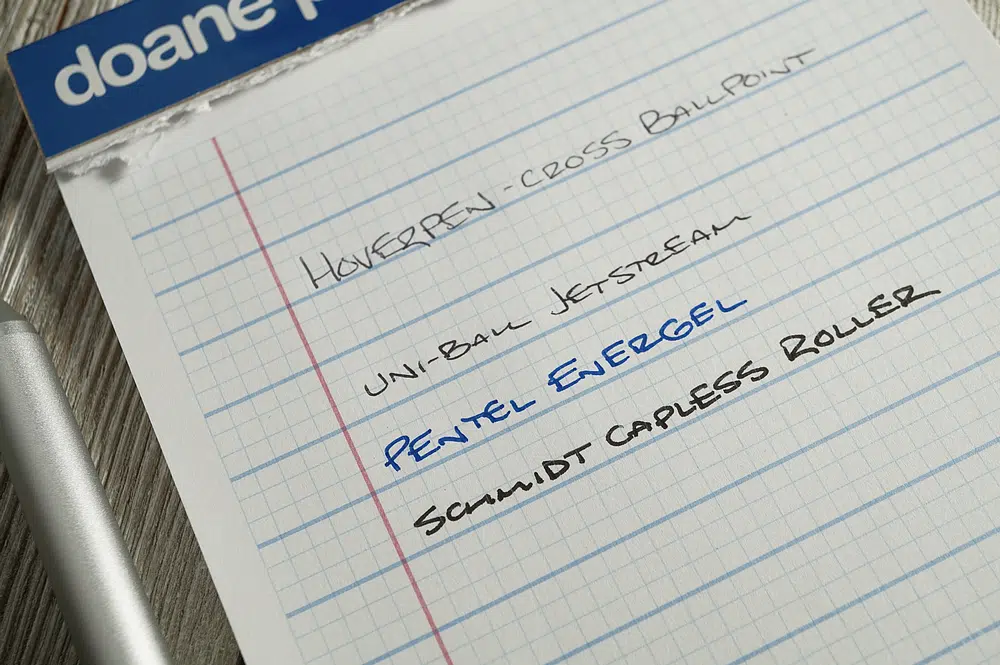 doane p
HOVERPEN - CROSS BALLPOINT
UNI-BALL JETSTREAM
PENTEL ENERGEL
SCHMIDT CAPLESS ROLLER